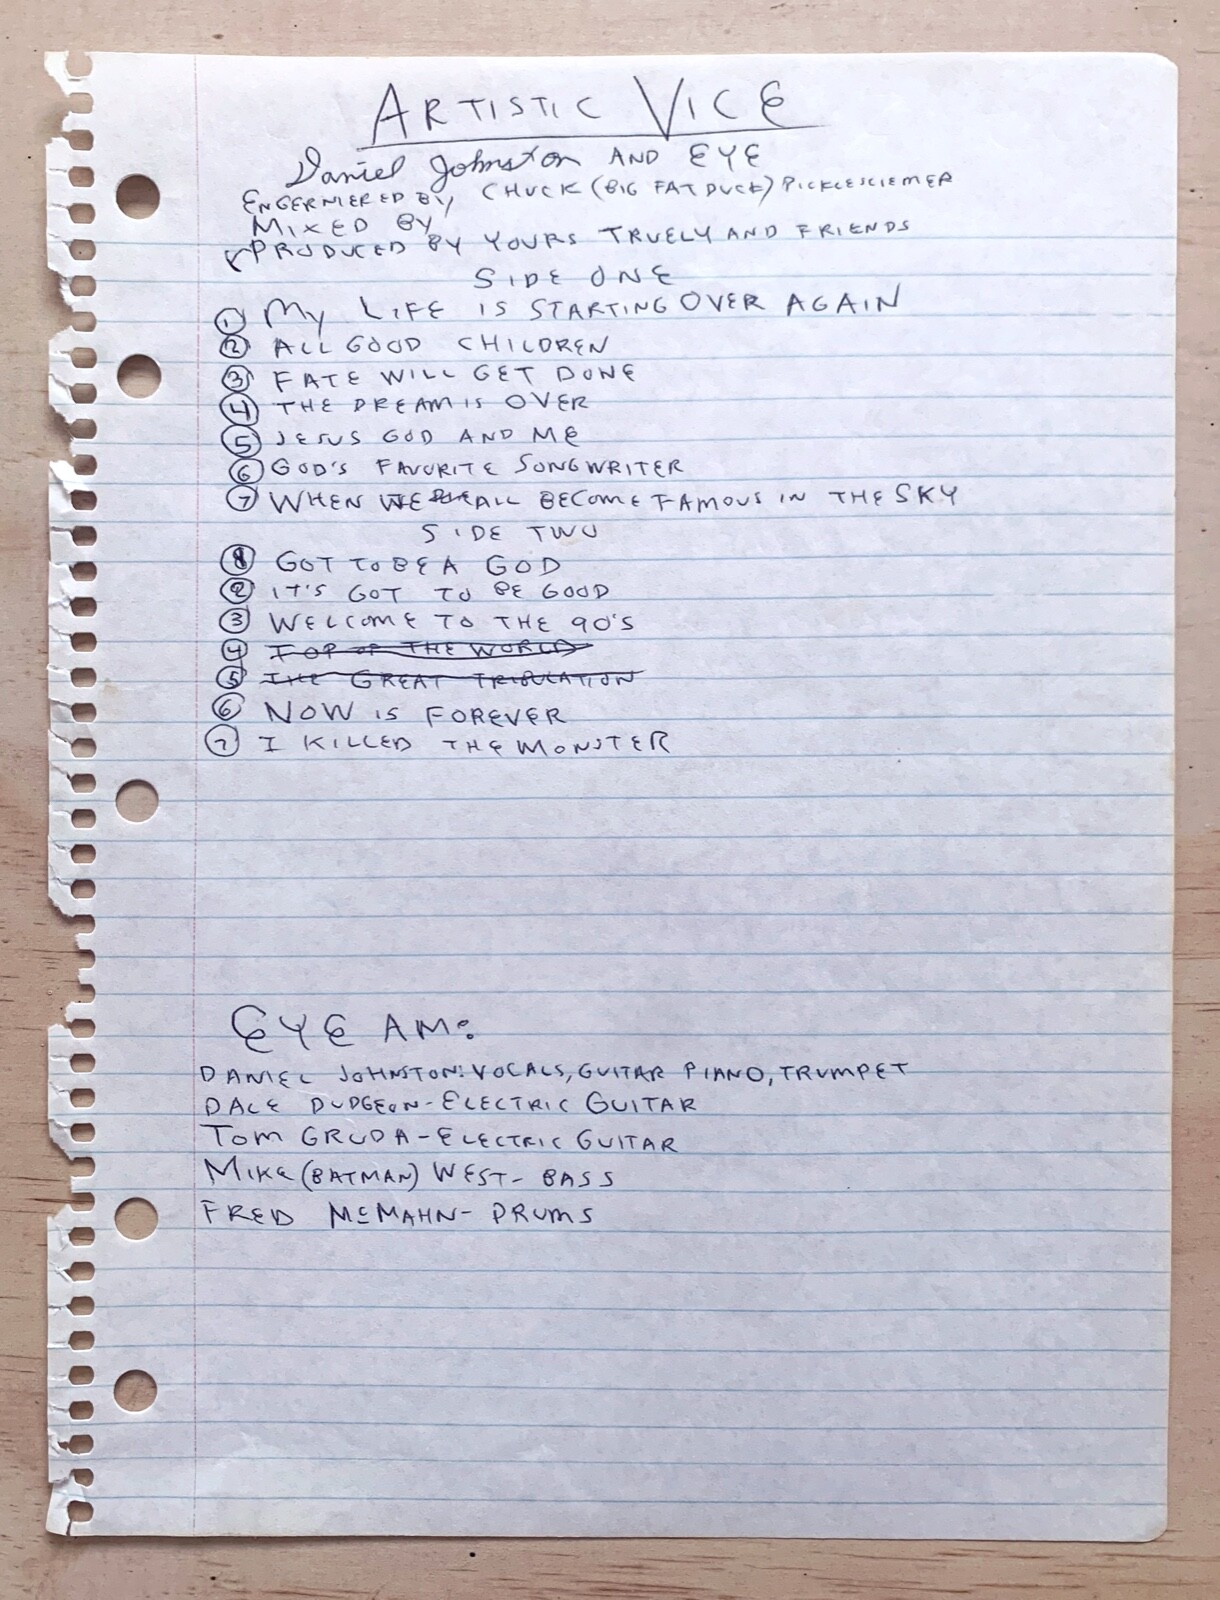 ARTISTIC VICE
Daniel Johnston AND EYE
ENGERNIERED BY CHUCK (BIG FAT DUCK) PICKLESCIEMER
MIXED BY
PRODUCED BY YOURS TRUELY AND FRIENDS
SIDE ONE
① MY LIFE IS STARTING OVER AGAIN
② ALL GOOD CHILDREN
③ FATE WILL GET DONE
④ THE DREAM IS OVER
⑤ JESUS GOD AND ME
⑥ GOD'S FAVORITE SONGWRITER
⑦ WHEN WE ALL BECOME FAMOUS IN THE SKY
SIDE TWO
① GOT TO BE A GOD
② IT'S GOT TO BE GOOD
③ WELCOME TO THE 90'S
④ TOP OF THE WORLD
⑤ THE GREAT TRIBULATION
⑥ NOW IS FOREVER
⑦ I KILLED THE MONSTER
EYE AM:
DANIEL JOHNSTON: VOCALS, GUITAR PIANO, TRUMPET
DALE DUDGEON - ELECTRIC GUITAR
TOM GRUDA - ELECTRIC GUITAR
MIKE (BATMAN) WEST - BASS
FRED McMAHN - DRUMS